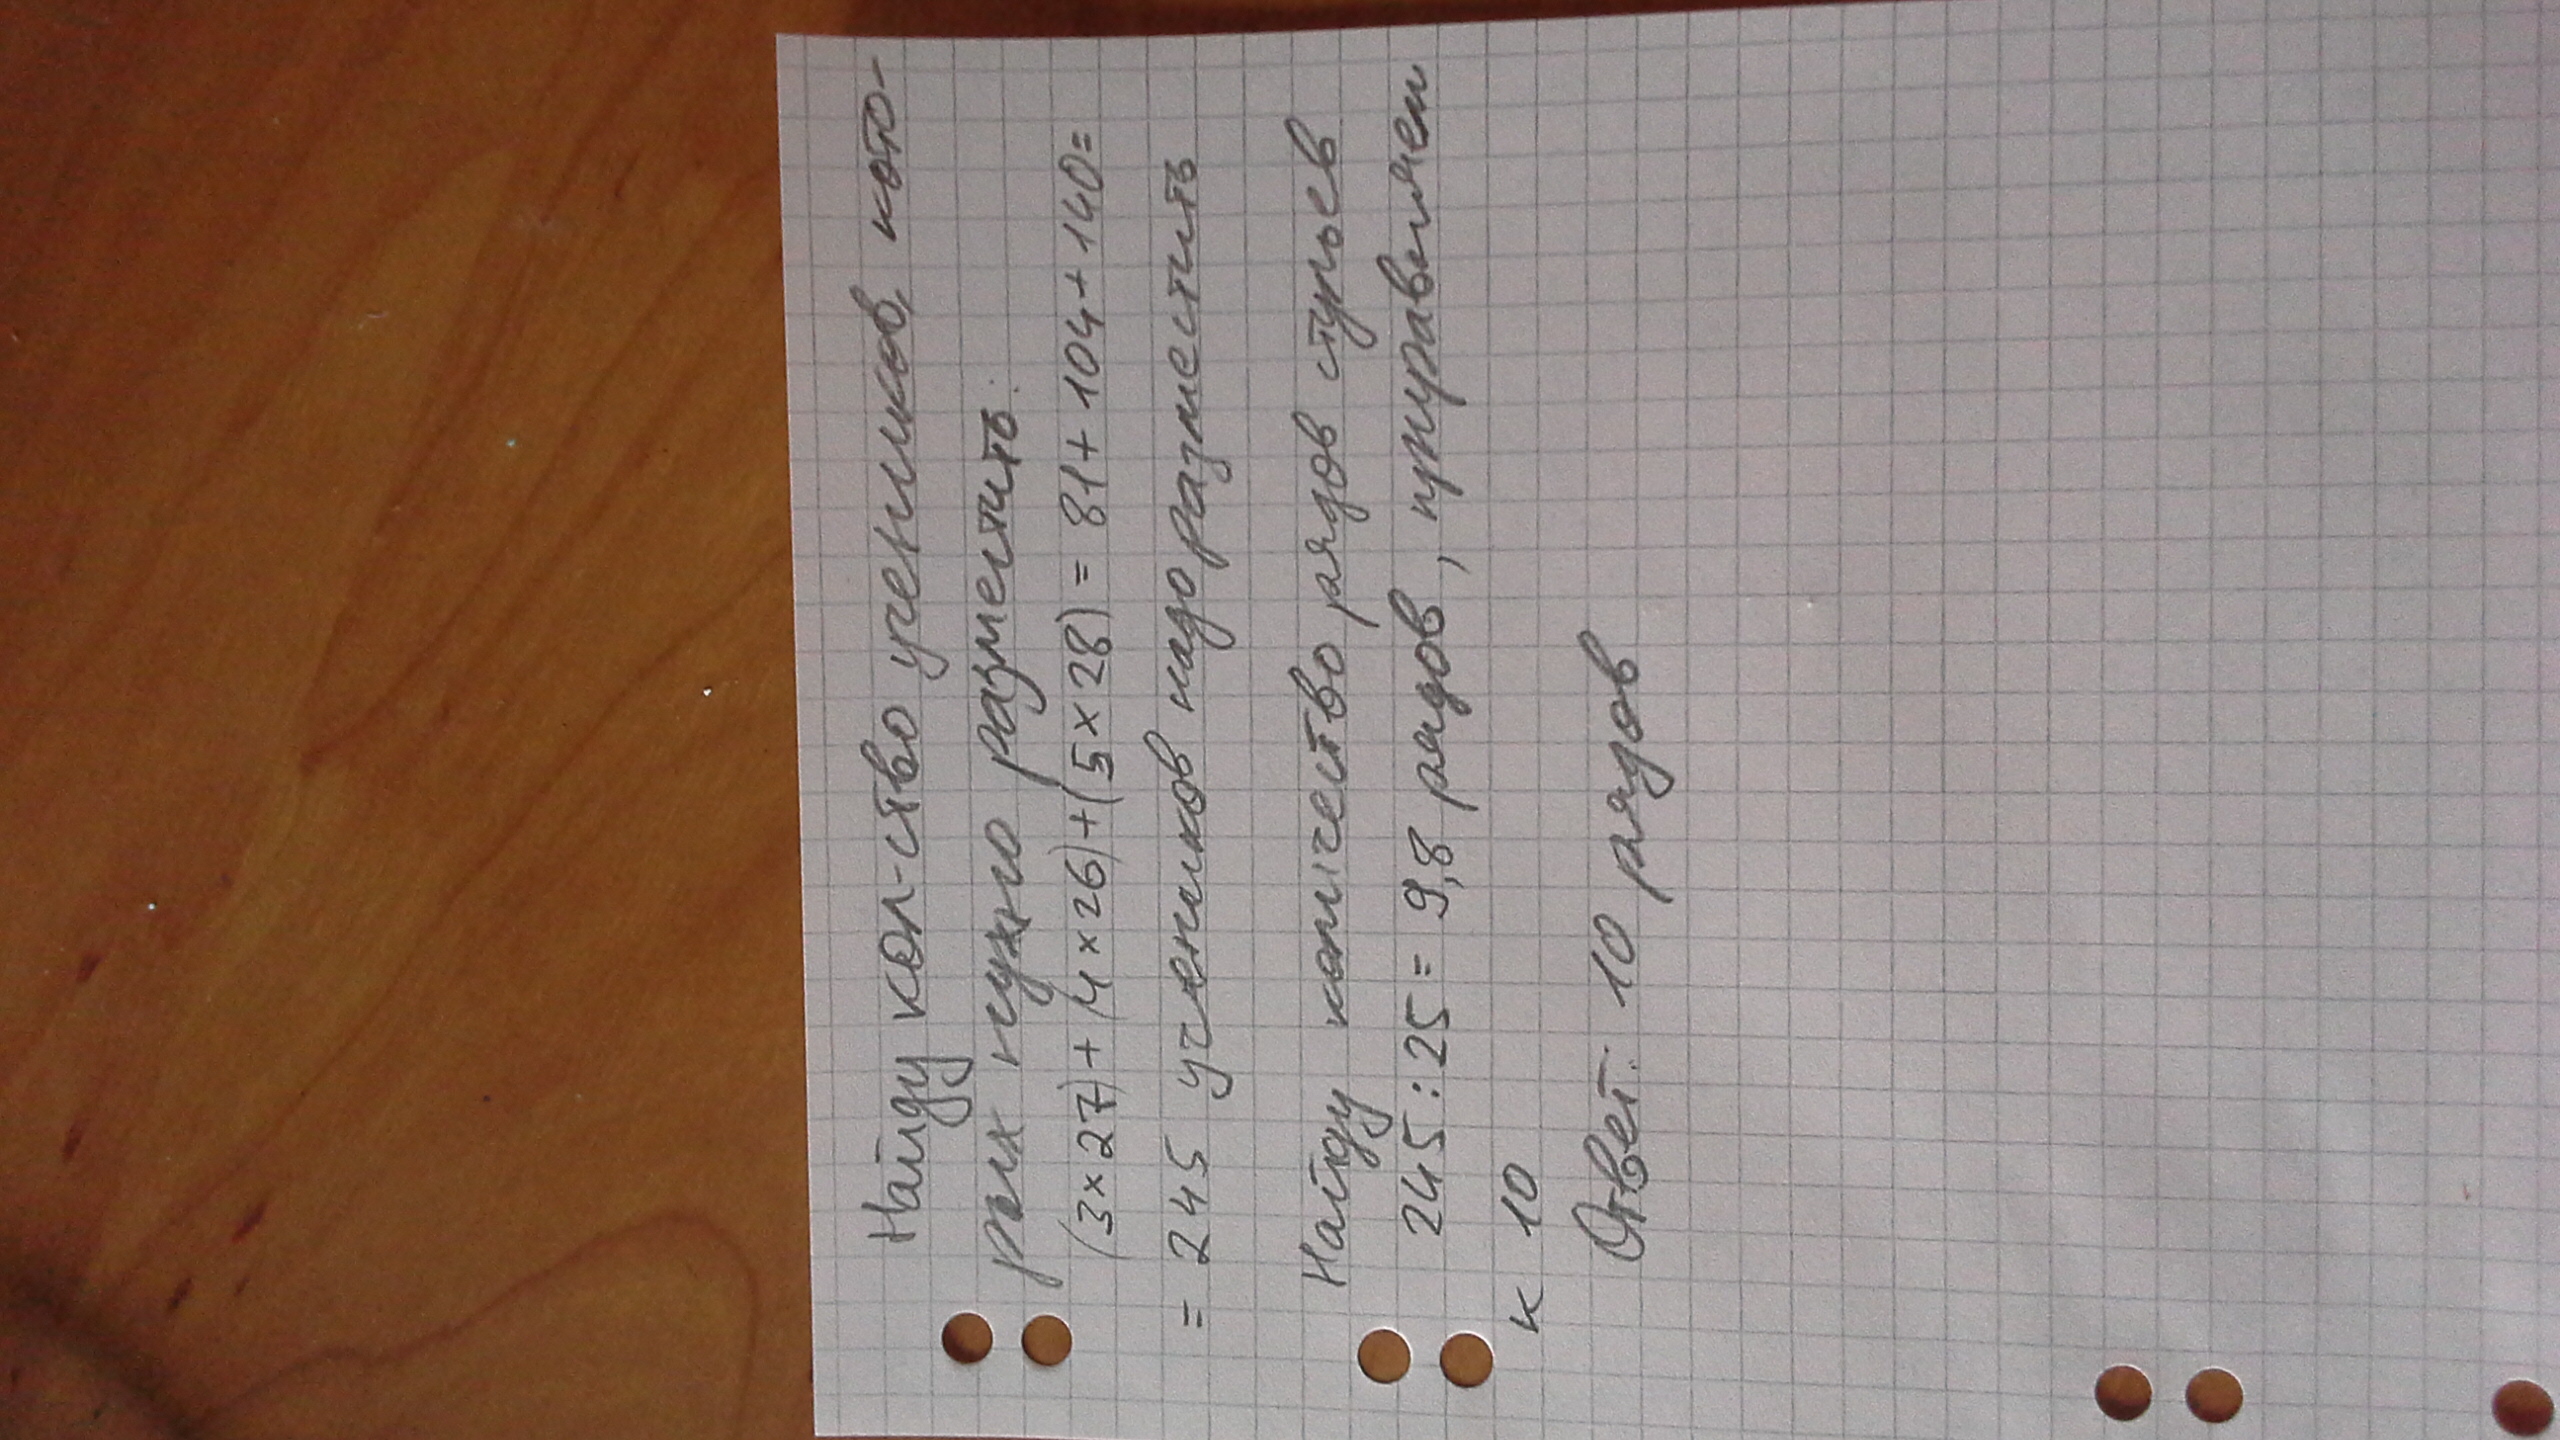 Найду кол-ство учеников, кото-
рых нужно разместить:
(3×27)+(4×26)+(5×28)=81+104+140=
= 245 учеников надо разместить
Найду количество рядов стульев
245:25=9,8 рядов, приравняем
к 10
Ответ: 10 рядов